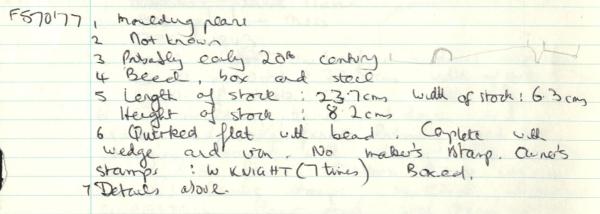 FS70'77 1 Moulding plane
2 Not known
3 Probably early 20th century
4 Beech, box and steel
5 Length of stock : 23.7cms Width of stock : 6.3cms
Height of stock : 8.2cms
6 Quirked flat with bead. Complete with
wedge and iron. No maker's stamp. Owner's
stamps : W KNIGHT (7 times) Boxed.
7 Details above.